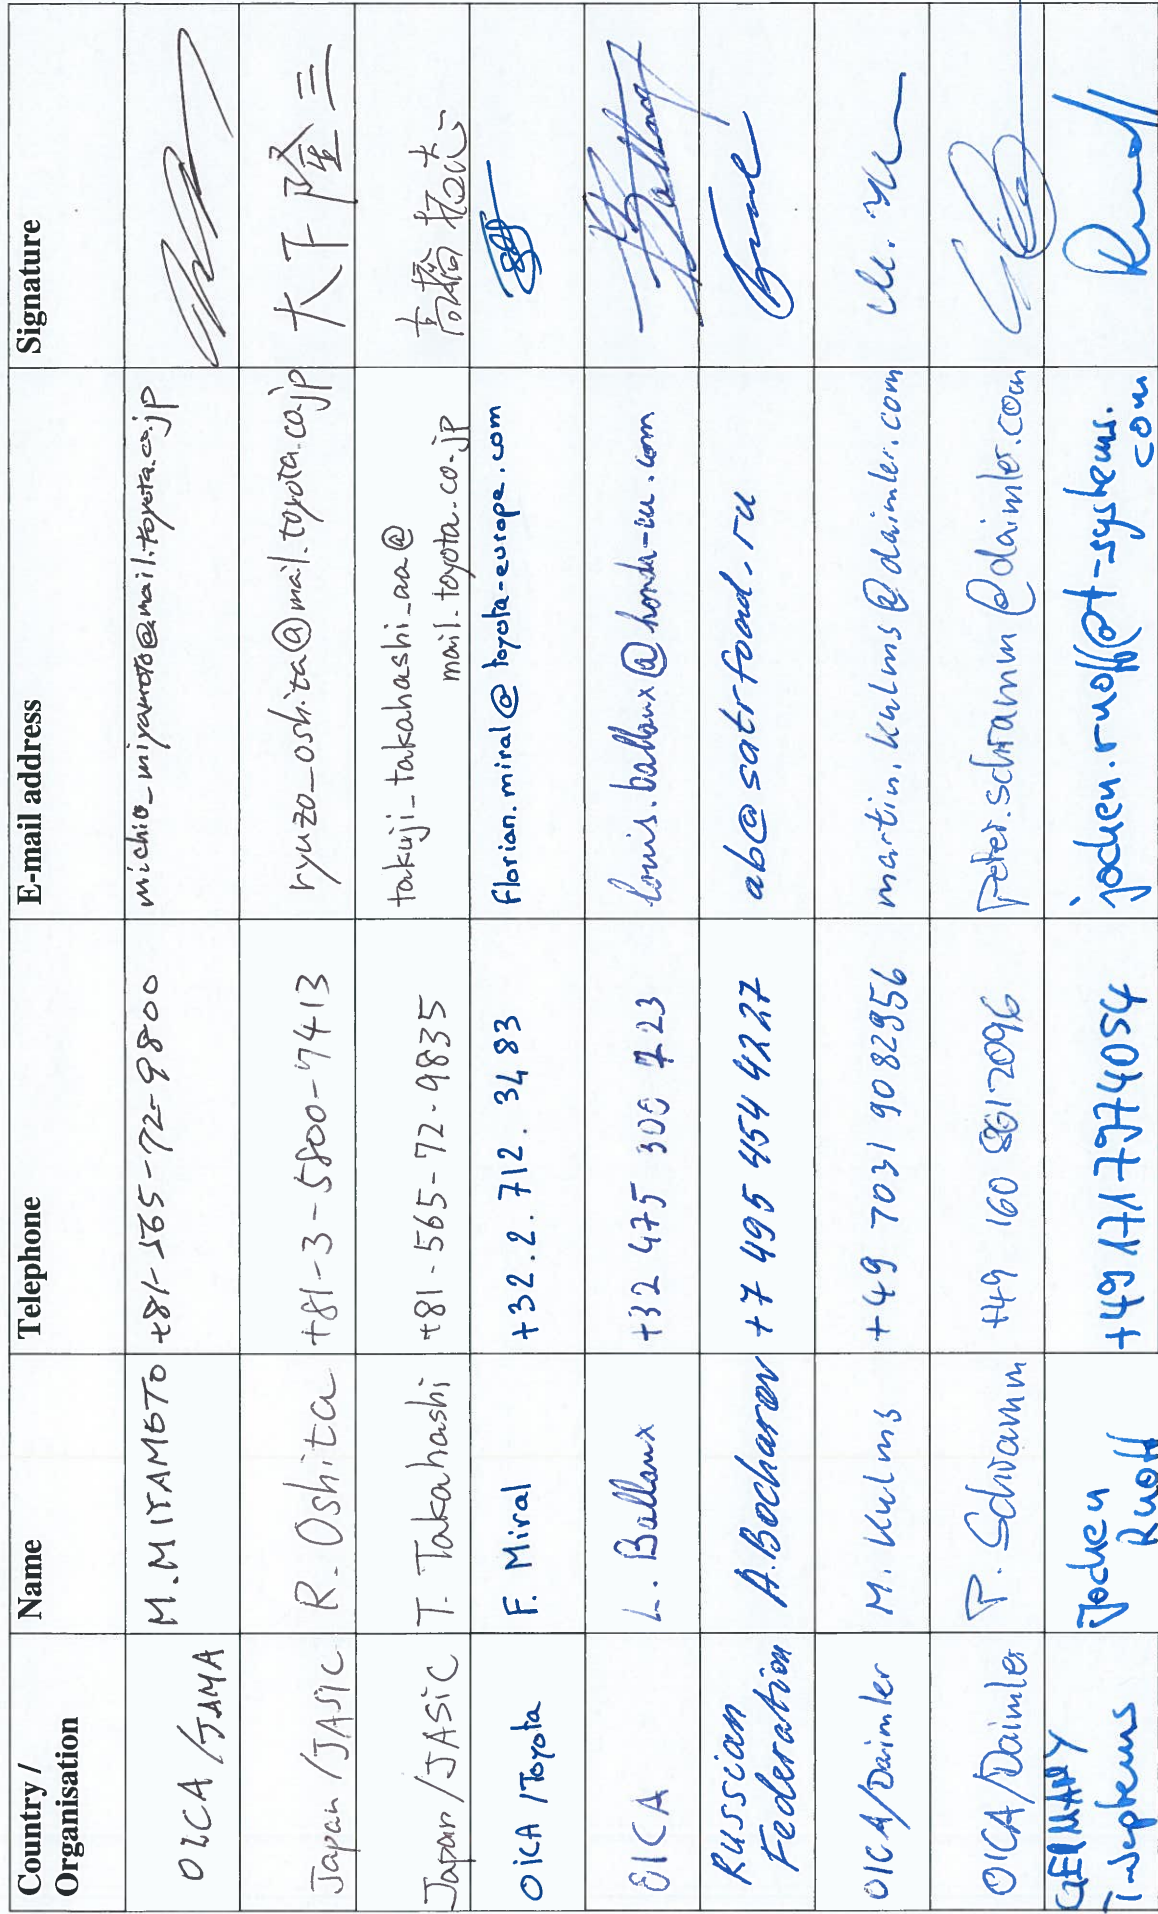 Country / Organisation Name Telephone E-mail address Signature
OICA / JAMA M. MIYAMOTO +81-565-72-9800 michio_miyamoto@mail.toyota.co.jp
Japan / JASIC R. Oshita +81-3-5800-7413 ryuzo_oshita@mail.toyota.co.jp 大下隆三
Japan / JASIC T. Takahashi +81-565-72-9835 takuji_takahashi_aa@
mail.toyota.co.jp 高橋拓志
OiCA / Toyota F. Miral +32.2.712.3483 florian.miral@toyota-europe.com
OICA L. Ballaux +32 475 300 723 louis.ballaux@honda-eu.com
Russian
Federation A. Bocharov +7 495 454 4227 ab@satrfond.ru
OICA/Daimler M. Kulms +49 7031 9082956 martin.kulms@daimler.com
OICA/Daimler P. Schramm +49 160 8612096 Peter.schramm@daimler.com
GERMANY
T-Systems Jochen
Ruoff +49 171 7974054 jochen.ruoff@t-systems.
com Ruoff